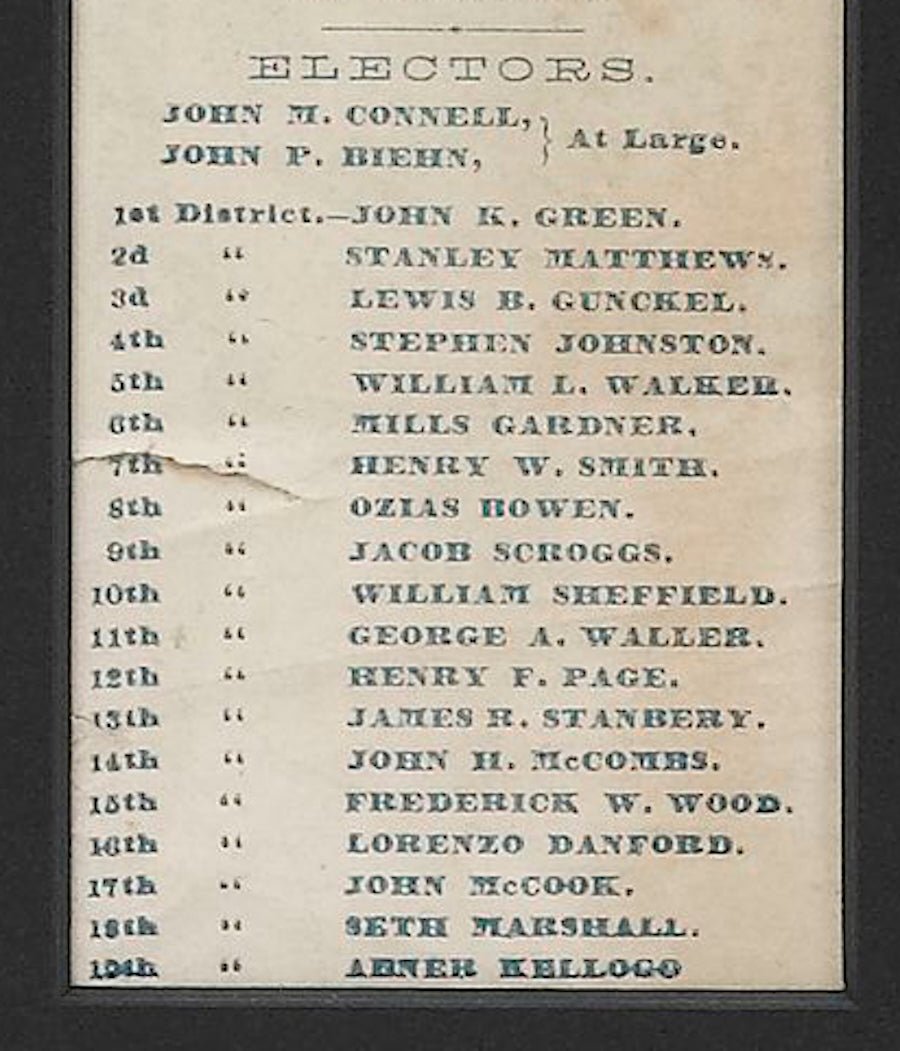 ELECTORS.
JOHN M. CONNELL,
JOHN P. BIEHN,
} At Large.
1st District.—JOHN K. GREEN.
2d " STANLEY MATTHEWS.
3d " LEWIS B. GUNCKEL.
4th " STEPHEN JOHNSTON.
5th " WILLIAM L. WALKER.
6th " MILLS GARDNER.
7th " HENRY W. SMITH.
8th " OZIAS BOWEN.
9th " JACOB SCROGGS.
10th " WILLIAM SHEFFIELD.
11th " GEORGE A. WALLER.
12th " HENRY F. PAGE.
13th " JAMES R. STANBERY.
14th " JOHN H. McCOMBS.
15th " FREDERICK W. WOOD.
16th " LORENZO DANFORD.
17th " JOHN McCOOK.
18th " SETH MARSHALL.
19th " ABNER KELLOGG